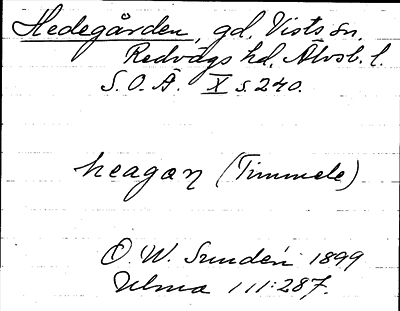 Hedegården, gd, Vists sn.
Redvägs hd. Älvsb. l.
S. O. Ä. X s. 240.
heagaɳ (Timmele)
O. W. Sundén 1899
Ulma 111:287.